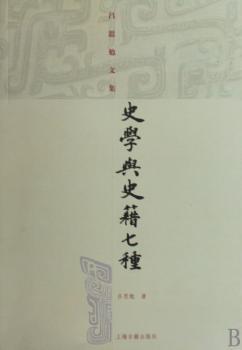 吕思勉文集
史學與史籍七種
吕思勉 著
上海古籍出版社
B